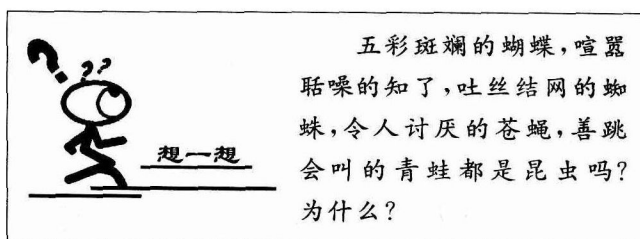 ? ? ?
想一想
五彩斑斓的蝴蝶,喧嚣
聒噪的知了,吐丝结网的蜘
蛛,令人讨厌的苍蝇,善跳
会叫的青蛙都是昆虫吗?
为什么?